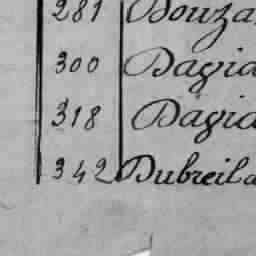 281 Douza
300 Dagia
318 Dagia
342 Dubreila